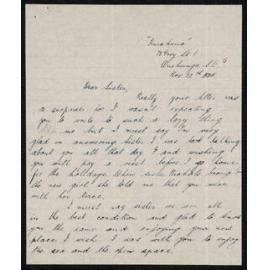 Dear Sister,
Really your letter was
a surprise for I wasn't expecting
you to write to such a lazy thing
like me but I must say I'm very
glad in answering sister I was just talking
about you all that day & and wishing
you will pay a visit before I go home
for the holidays. When Nichols brought
the new girl she told me that you were
with her twice.
I must say sister we are all
in the best condition and glad to know
you the same and enjoying your new
place. I wish I was with you to enjoy
the sea and the open space.